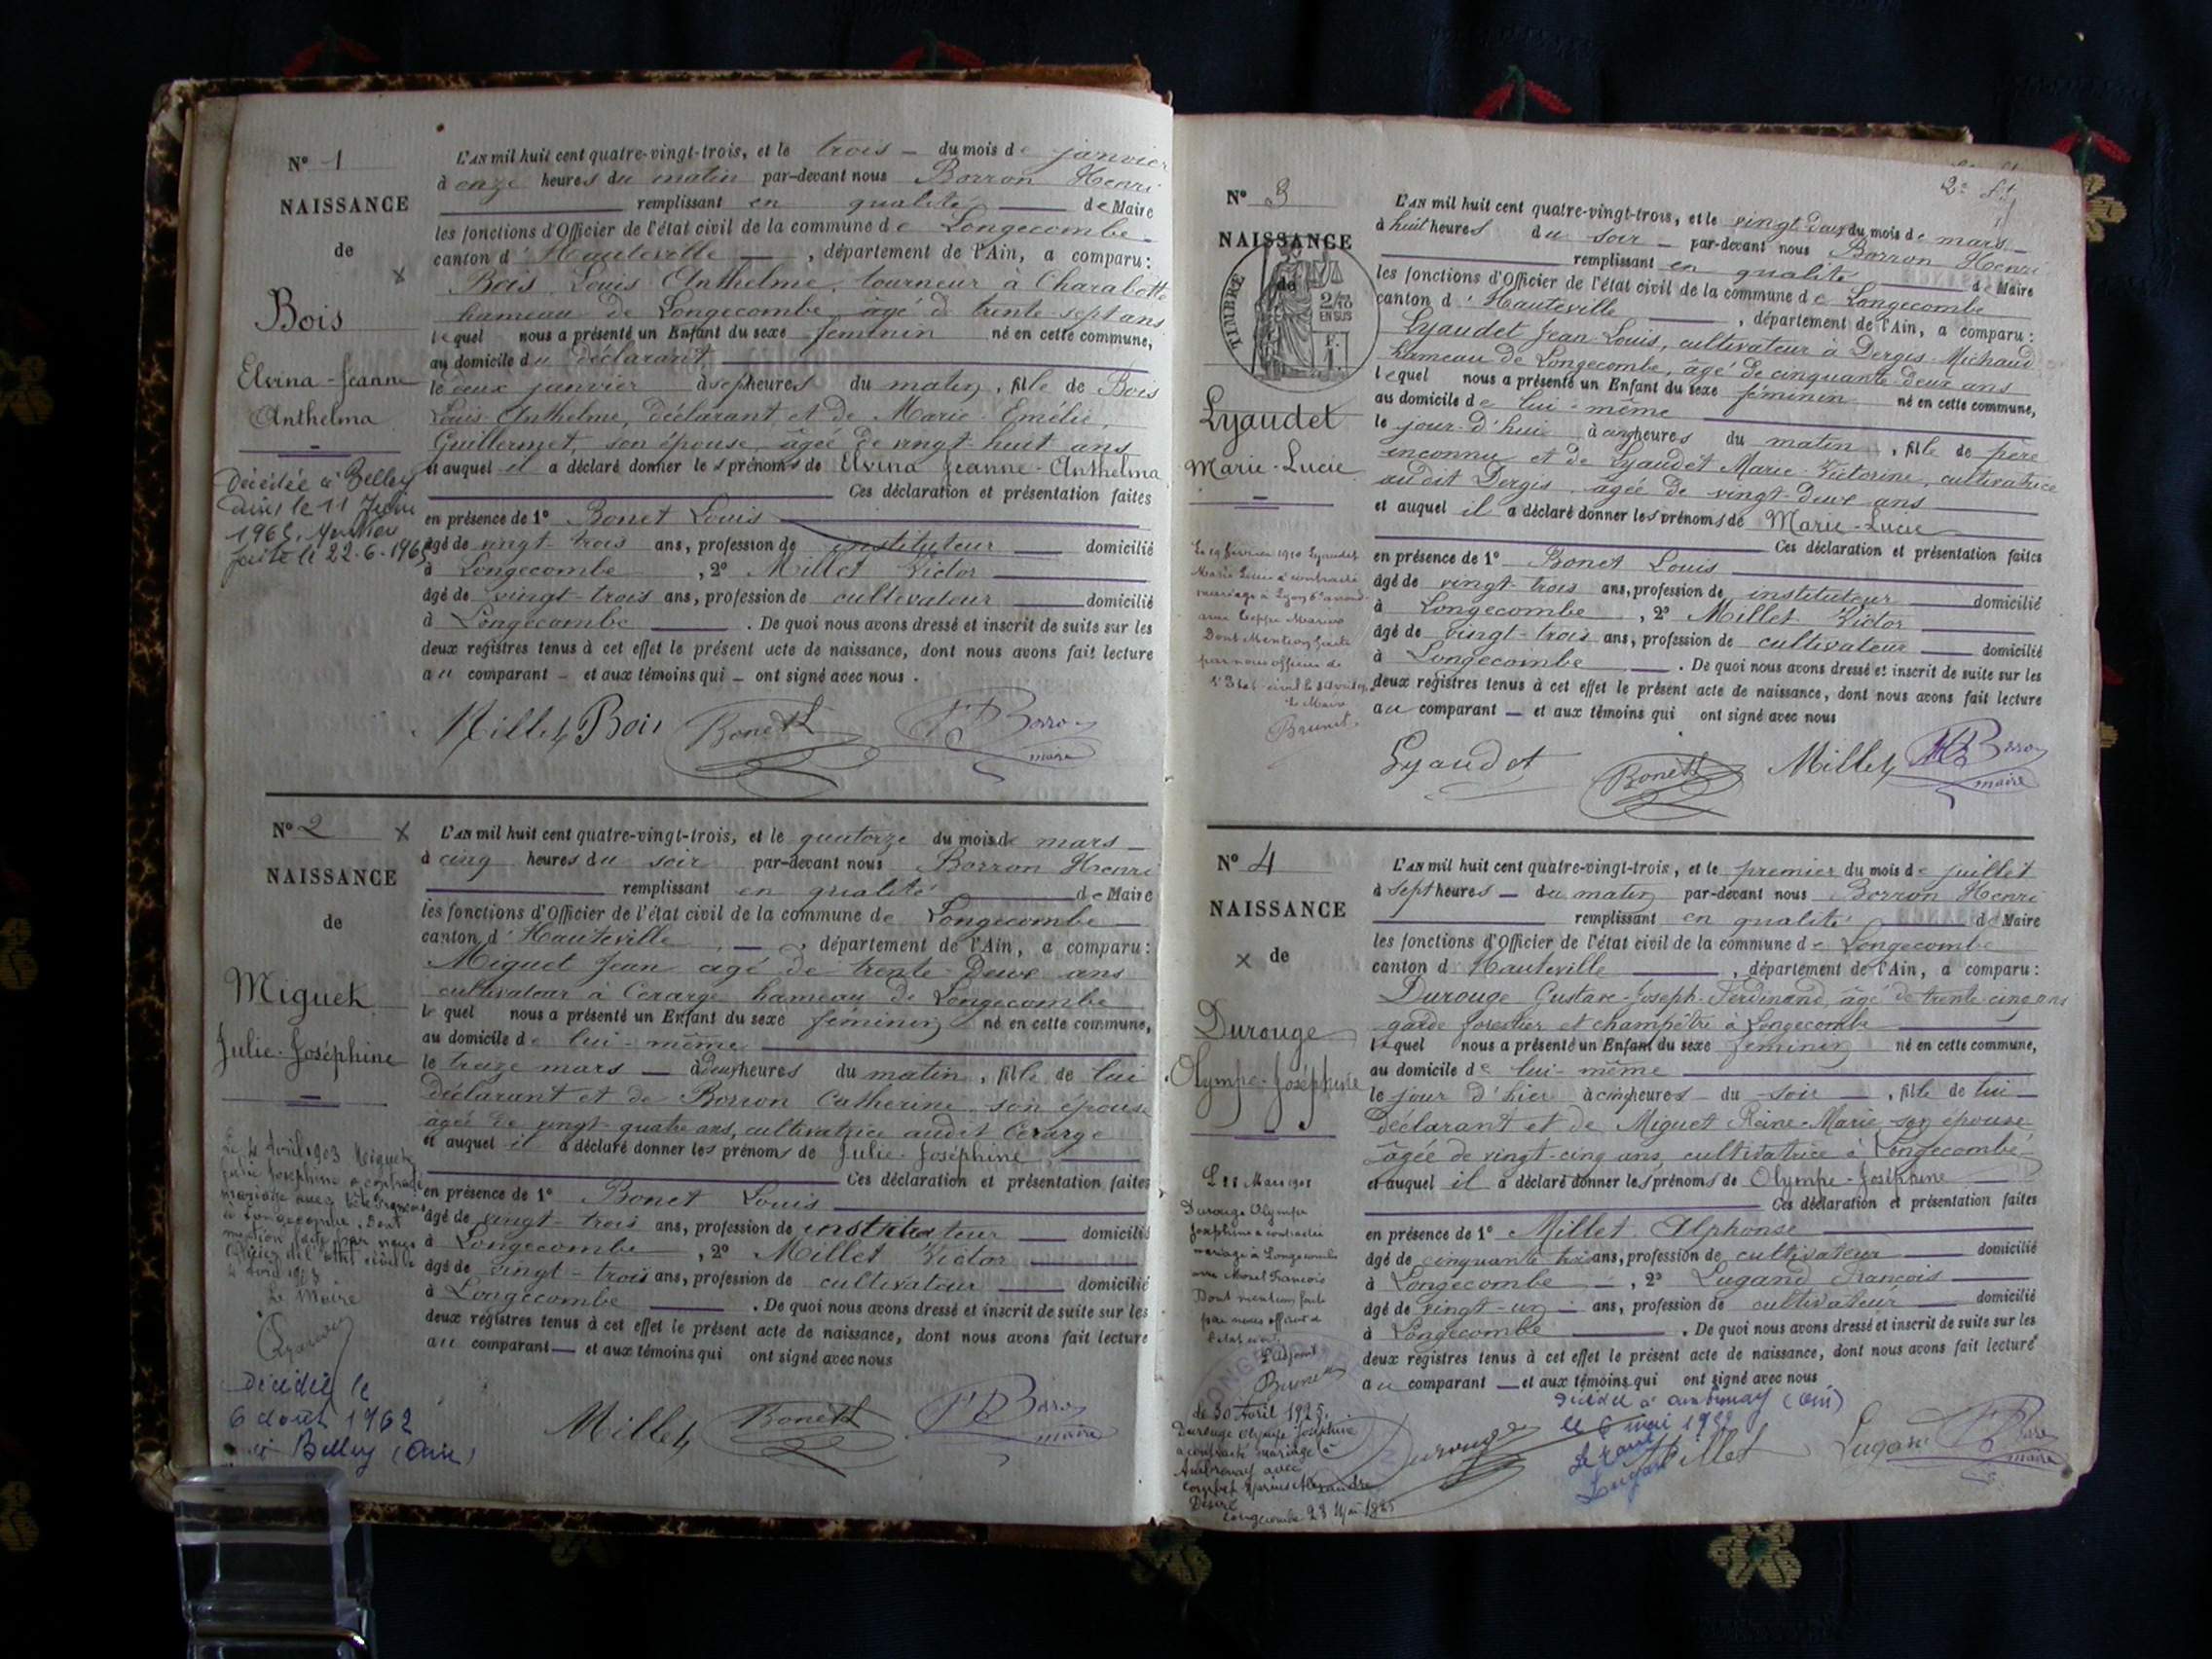 Nº 1
NAISSANCE
de
Bois
Elvina-Jeanne
Anthelma
Décédée à Belley
le 11 Juin
1965. Mention
faite le 22-6-1965
L'AN mil huit cent quatre-vingt-trois, et le trois du mois de janvier
à onze heures du matin par-devant nous Borron Henri
remplissant en qualité de Maire
les fonctions d'Officier de l'état civil de la commune de Longecombe
canton d'Hauteville, département de l'Ain, a comparu:
Bois Louis Anthelme, tourneur à Charabotte
hameau de Longecombe âgé de trente-sept ans
lequel nous a présenté un Enfant du sexe féminin né en cette commune,
au domicile du déclarant
le deux janvier à sept heures du matin, fille de Bois
Louis Anthelme, déclarant et de Marie Emélie,
Guillermet, son épouse, âgée de vingt-huit ans
et auquel il a déclaré donner les prénoms de Elvina Jeanne-Anthelma
Ces déclaration et présentation faites
en présence de 1º Bonet Louis
âgé de vingt-trois ans, profession de instituteur domicilié
à Longecombe, 2º Millet Victor
âgé de vingt-trois ans, profession de cultivateur domicilié
à Longecombe. De quoi nous avons dressé et inscrit de suite sur les
deux registres tenus à cet effet le présent acte de naissance, dont nous avons fait lecture
au comparant et aux témoins qui ont signé avec nous.
Millet Bois Bonet L Borron
maire
Nº 2
NAISSANCE
de
Miguet
Julie-Joséphine
Le 4 Avril 1903 Miguet
Julie Joséphine a contracté
mariage avec
à Longecombe. Dont
mention faite par nous
Officier de l'état civil le
4 Avril 1903
Le Maire
Décédée le
6 août 1962
à Belley (Ain)
L'AN mil huit cent quatre-vingt-trois, et le quatorze du mois de mars
à cinq heures du soir par-devant nous Borron Henri
remplissant en qualité de Maire
les fonctions d'Officier de l'état civil de la commune de Longecombe
canton d'Hauteville, département de l'Ain, a comparu:
Miguet Jean âgé de trente-deux ans
cultivateur à Cerarge hameau de Longecombe
lequel nous a présenté un Enfant du sexe féminin né en cette commune,
au domicile de lui-même
le treize mars à deux heures du matin, fille de lui
déclarant et de Borron Catherine son épouse
âgée de vingt-quatre ans, cultivatrice audit Cerarge
et auquel il a déclaré donner les prénoms de Julie-Joséphine
Ces déclaration et présentation faites
en présence de 1º Bonet Louis
âgé de vingt-trois ans, profession de instituteur domicilié
à Longecombe, 2º Millet Victor
âgé de vingt-trois ans, profession de cultivateur domicilié
à Longecombe. De quoi nous avons dressé et inscrit de suite sur les
deux registres tenus à cet effet le présent acte de naissance, dont nous avons fait lecture
au comparant et aux témoins qui ont signé avec nous
Millet Bonet L Borron
maire
2º
Nº 3
NAISSANCE
de
TIMBRE
2/10
EN SUS
F.
1
Lyaudet
Marie-Lucie
Le 19 février 1910 Lyaudet
Marie Lucie a contracté
mariage à Lyon 6º arrond.
avec Marius
Dont Mention faite
par nous officier de
l'Etat-civil
Le Maire
Brunet
L'AN mil huit cent quatre-vingt-trois, et le vingt deux du mois de mars
à huit heures du soir par-devant nous Borron Henri
remplissant en qualité de Maire
les fonctions d'Officier de l'état civil de la commune de Longecombe
canton d'Hauteville, département de l'Ain, a comparu:
Lyaudet Jean-Louis, cultivateur à Dergis-Michaud
hameau de Longecombe, âgé de cinquante-deux ans
lequel nous a présenté un Enfant du sexe féminin né en cette commune,
au domicile de lui-même
le jour d'hui à onze heures du matin, fille de père
inconnu et de Lyaudet Marie-Victorine, cultivatrice
audit Dergis, âgée de vingt-deux ans
et auquel il a déclaré donner les prénoms de Marie-Lucie
Ces déclaration et présentation faites
en présence de 1º Bonet Louis
âgé de vingt-trois ans, profession de instituteur domicilié
à Longecombe, 2º Millet Victor
âgé de vingt-trois ans, profession de cultivateur domicilié
à Longecombe. De quoi nous avons dressé et inscrit de suite sur les
deux registres tenus à cet effet le présent acte de naissance, dont nous avons fait lecture
au comparant et aux témoins qui ont signé avec nous
Lyaudet Bonet L Millet Borron
maire
Nº 4
NAISSANCE
de
Durouge
Olympe-Joséphine
Mars
Durouge Olympe
Joséphine a contracté
mariage à Longecombe
avec Moret François
Dont mention faite
par nous officier de
l'état civil
L'adjoint
Brunet
Le 30 Avril 1925,
Durouge Olympe Joséphine
a contracté mariage à
Ambronay avec
Alexandre
Désiré
Longecombe 23 Mai 1925
L'AN mil huit cent quatre-vingt-trois, et le premier du mois de juillet
à sept heures du matin par-devant nous Borron Henri
remplissant en qualité de Maire
les fonctions d'Officier de l'état civil de la commune de Longecombe
canton d'Hauteville, département de l'Ain, a comparu:
Durouge Gustave-Joseph-Ferdinand, âgé de trente-cinq ans
garde forestier et champêtre à Longecombe
lequel nous a présenté un Enfant du sexe féminin né en cette commune,
au domicile de lui-même
le jour d'hier à cinq heures du soir, fille de lui
déclarant et de Miguet Reine-Marie son épouse
âgée de vingt-cinq ans, cultivatrice à Longecombe
et auquel il a déclaré donner les prénoms de Olympe-Joséphine
Ces déclaration et présentation faites
en présence de 1º Millet Alphonse
âgé de cinquante trois ans, profession de cultivateur domicilié
à Longecombe, 2º Lugand François
âgé de vingt-un ans, profession de cultivateur domicilié
à Longecombe. De quoi nous avons dressé et inscrit de suite sur les
deux registres tenus à cet effet le présent acte de naissance, dont nous avons fait lecture
au comparant et aux témoins qui ont signé avec nous
Décédée à Ambronay (Ain)
le 6 mai
Durouge Millet Lugand Borron
maire